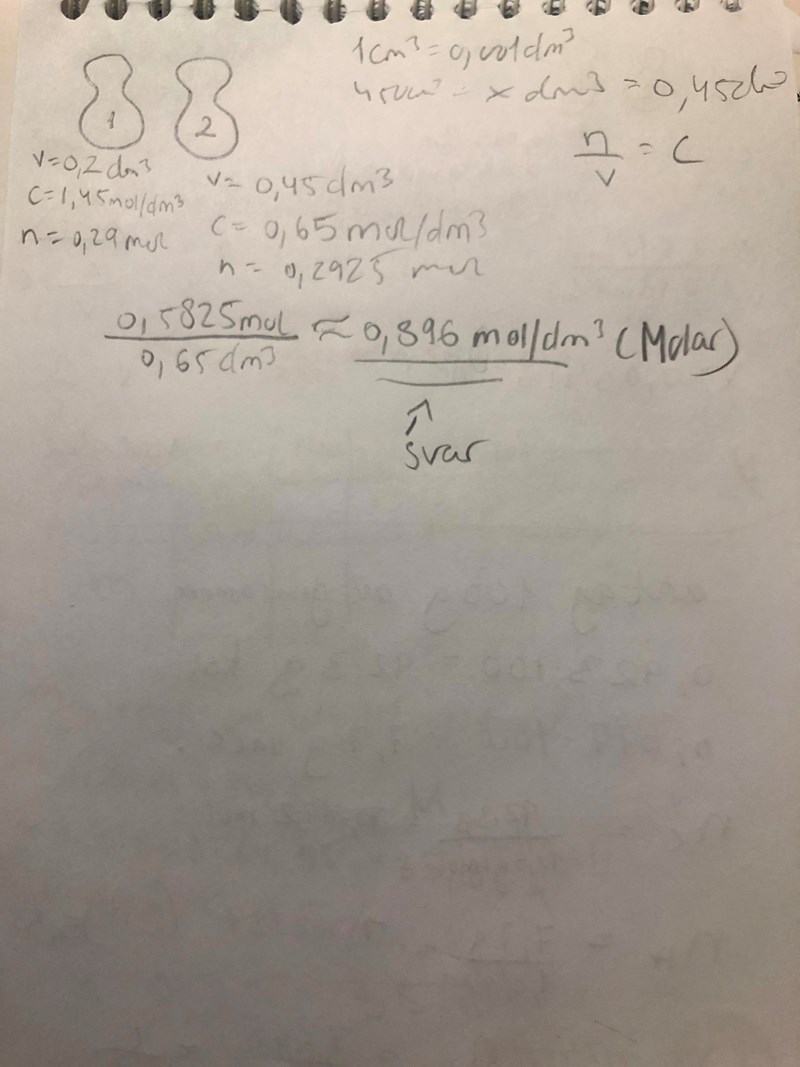 1cm³ = 0,001dm³
450cm³ = x dm³ = 0,45dm³
1 2
n/v = C
v=0,2 dm³
C=1,45mol/dm³
n=0,29 mol
v= 0,45dm³
C= 0,65 mol/dm³
n= 0,2925 mol
0,5825mol/0,65 dm³ ≈ 0,896 mol/dm³ (Molar)
↑
svar